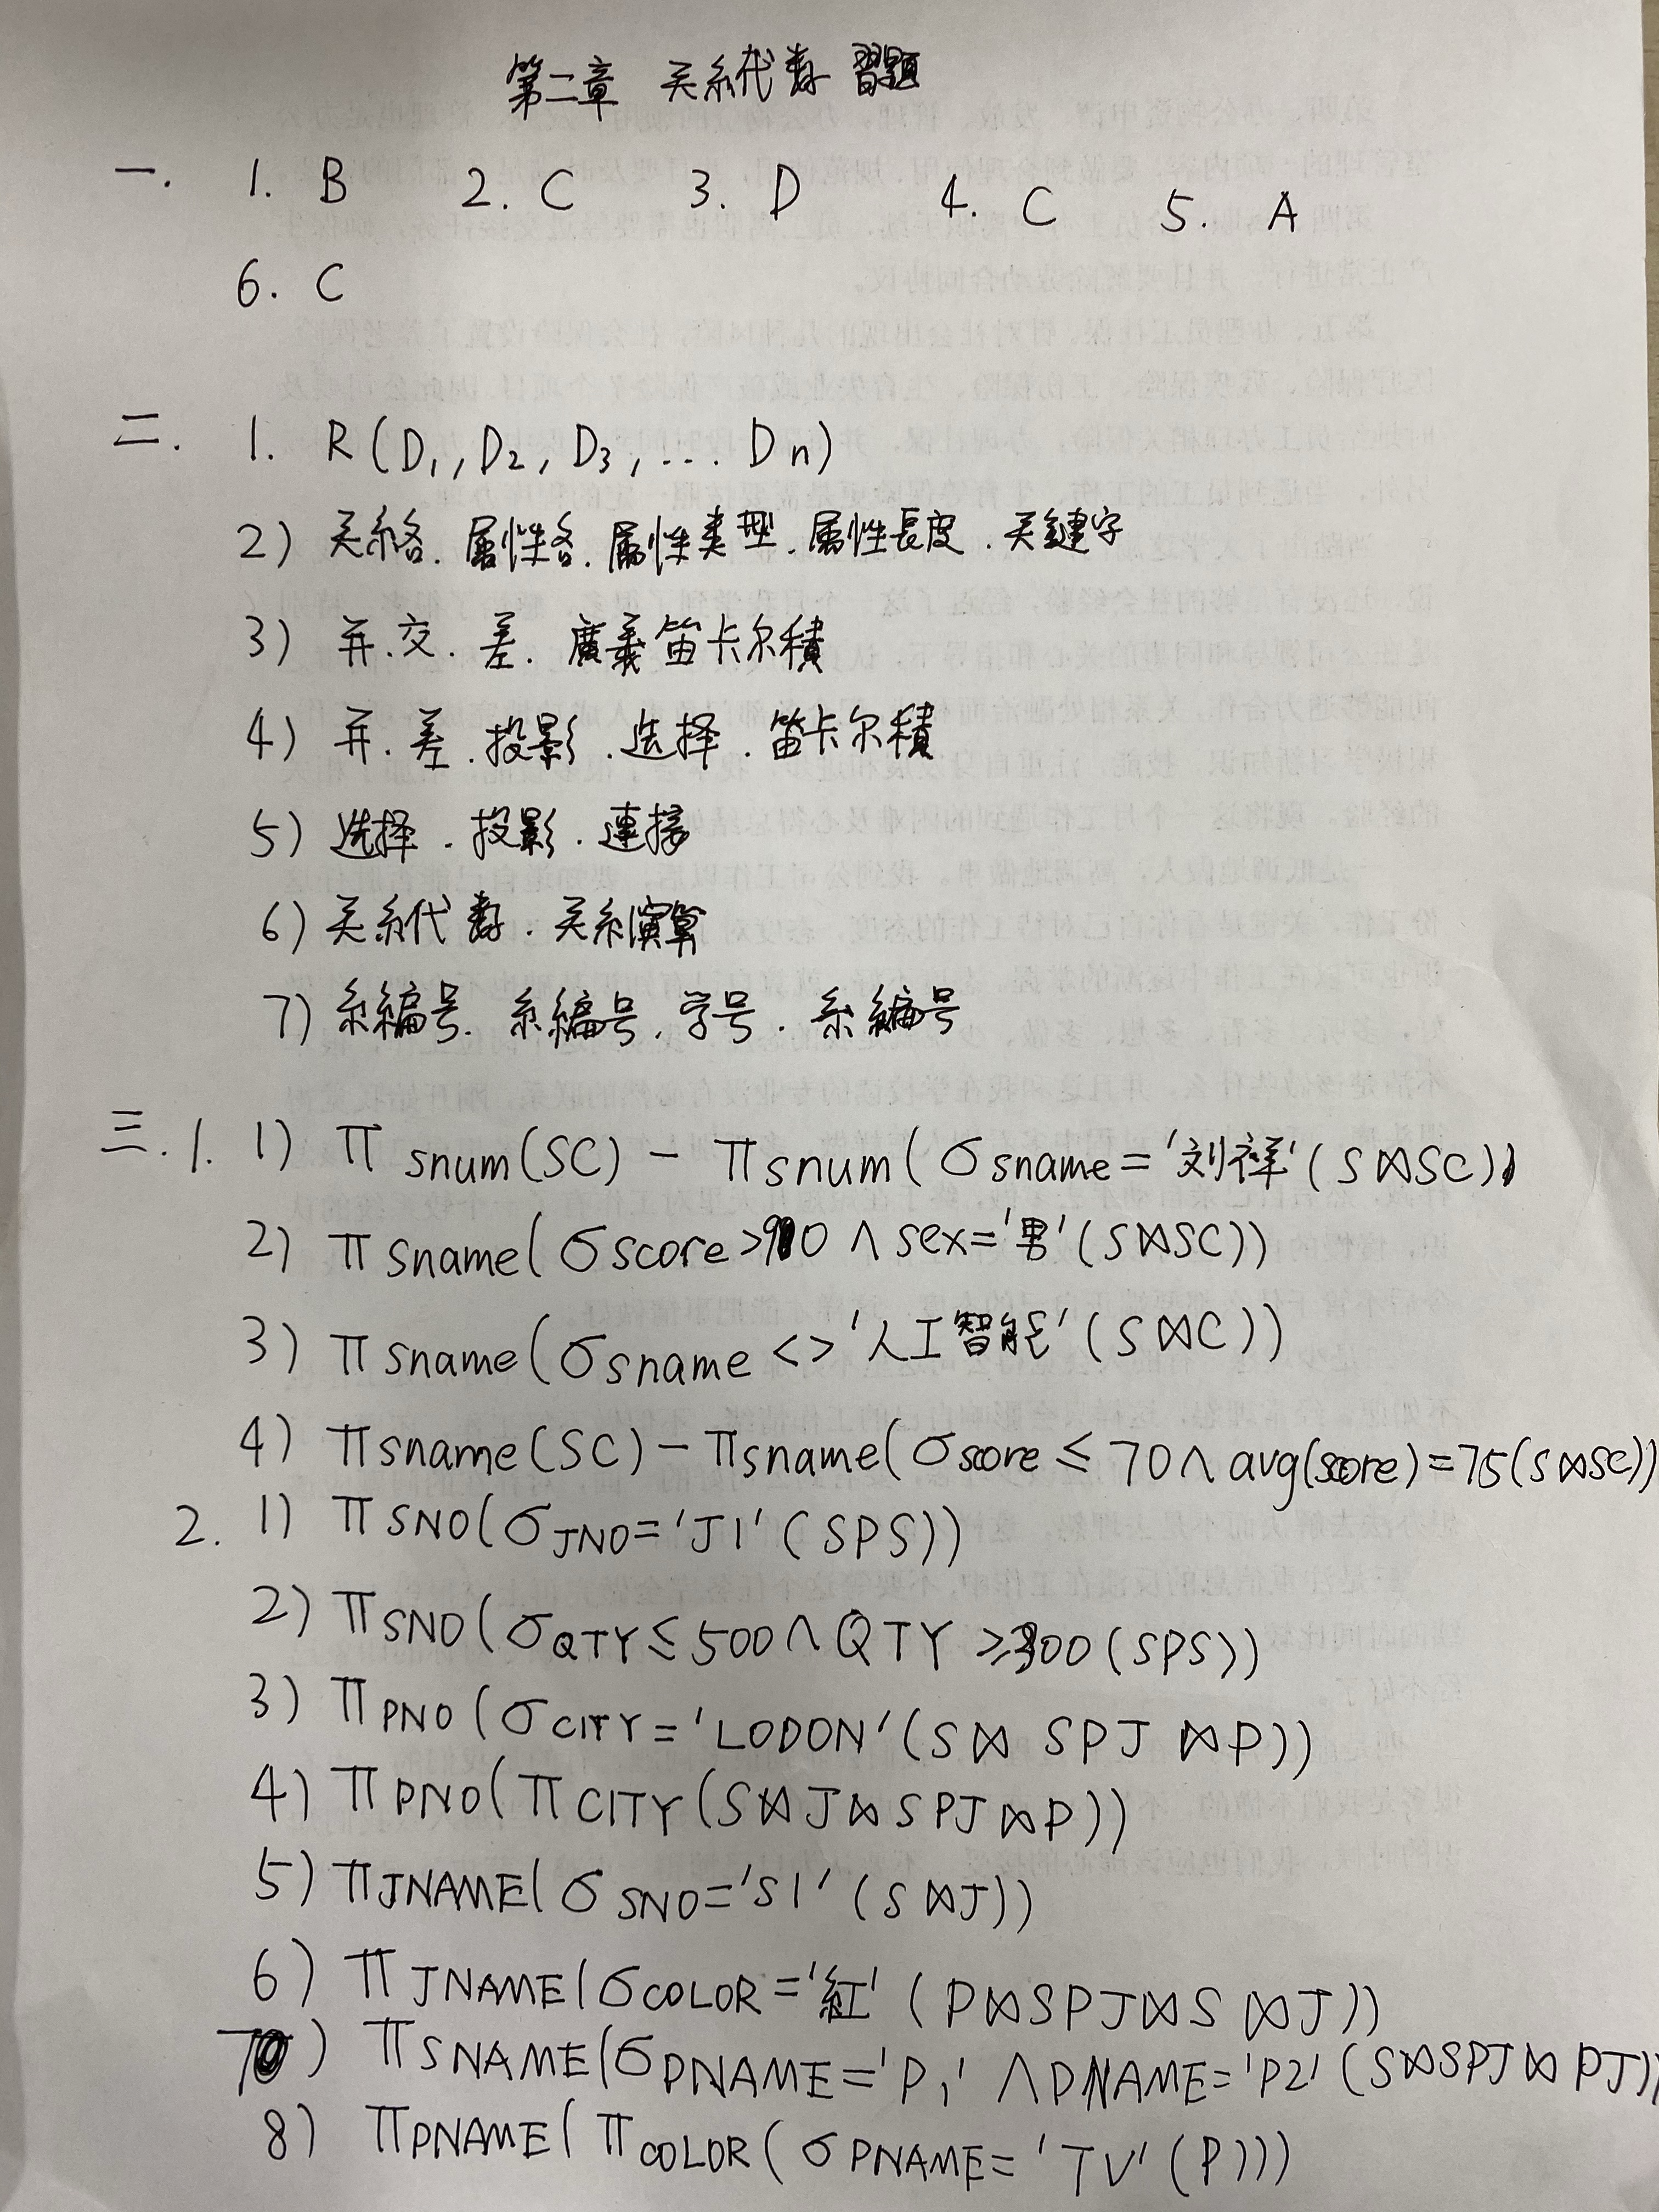 第二章 关系代数 習題
一. 1. B 2. C 3. D 4. C 5. A
6. C
二. 1. R(D₁,D₂,D₃,... Dn)
2) 关系名. 属性名. 属性类型. 属性長度. 关鍵字
3) 并.交.差.廣義笛卡尔積
4) 并.差.投影.选择.笛卡尔積
5) 选择.投影.連接
6) 关系代数.关系演算
7) 系編号. 系編号. 学号. 系編号
三. 1. 1) π snum(SC) - π snum(σ sname='刘祥'(S⋈SC))
2) π sname(σ score>90 ∧ sex='男'(S⋈SC))
3) π sname(σ sname <> '人工智能'(S⋈C))
4) π sname(SC) - π sname(σ score ≤ 70 ∧ avg(score)=75(S⋈SC))
2. 1) π SNO(σ JNO='J1'(SPS))
2) π SNO(σ QTY≤500 ∧ QTY ≥300(SPS))
3) π PNO(σ CITY='LODON'(S⋈ SPJ ⋈P))
4) π PNO(π CITY(S⋈J⋈SPJ⋈P))
5) π JNAME(σ SNO='S1'(S⋈J))
6) π JNAME(σ COLOR='紅'(P⋈SPJ⋈S⋈J))
7) π SNAME(σ PNAME='P₁' ∧ PNAME='P2'(S⋈SPJ⋈PJ))
8) π PNAME(π COLOR(σ PNAME='TV'(P)))